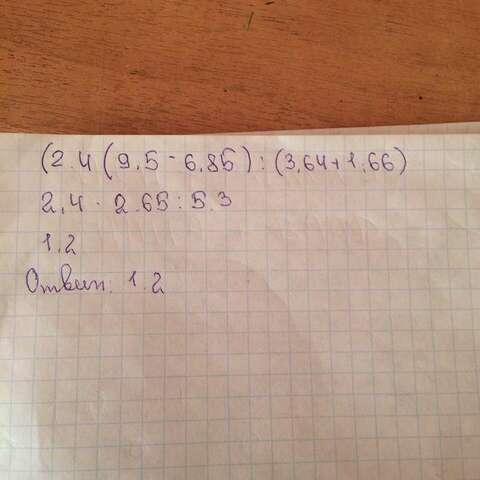 (2.4(9,5-6,85):(3,64+1,66)
2,4 · 2.65:5.3
1.2
Ответ. 1.2